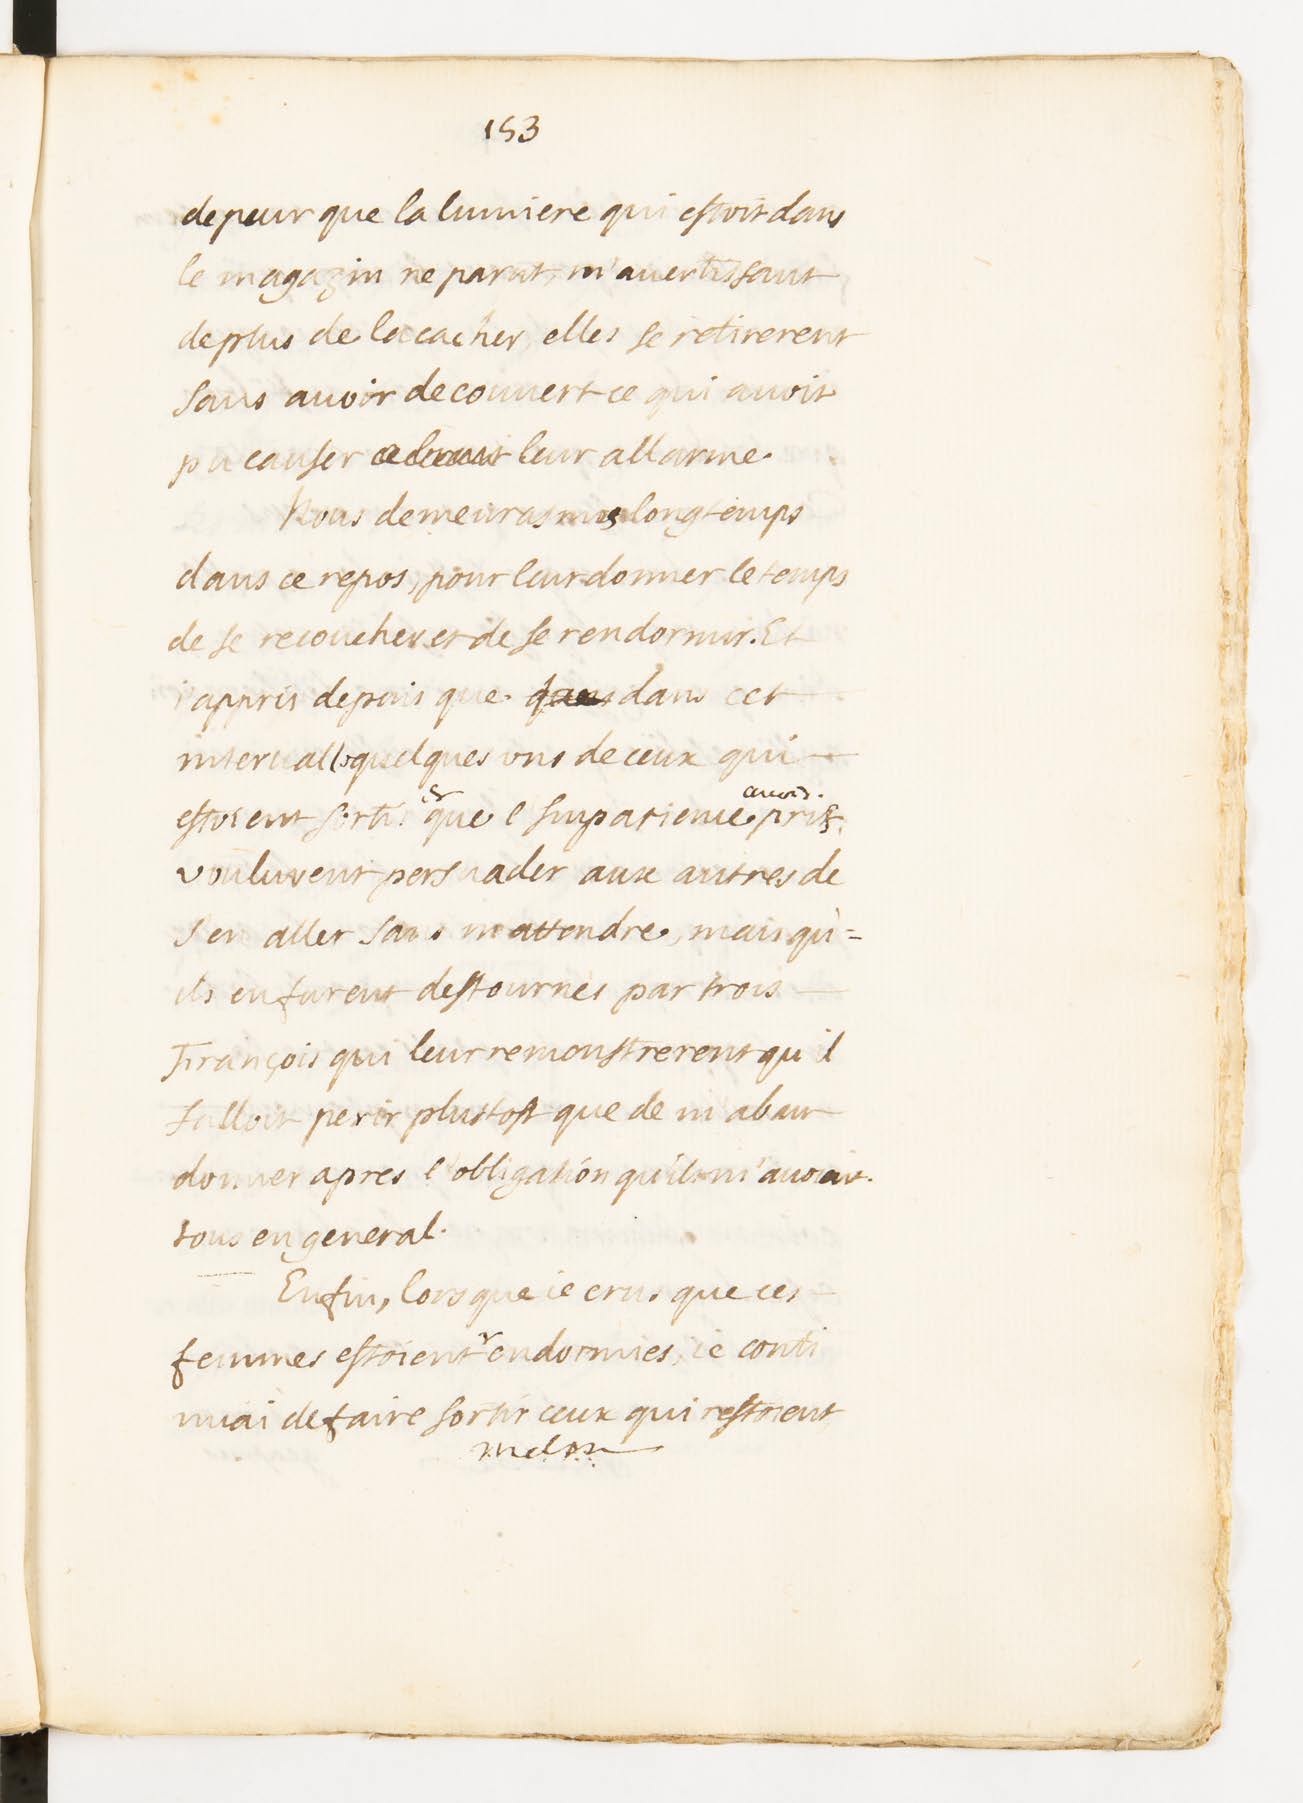 153
de peur que la lumiere qui estoit dans
le magazin ne parut, m'auertissant
de plus de la cacher, elles se retirerent
sans auoir decouuert ce qui auoit
pu causer leur allarme.
Nous demeurasmes longtemps
dans ce repos, pour leur donner le temps
de se recoucher et de se rendormir. Et
i'appris depuis que dans cet
interualle quelques vns de ceux qui
estoient sortis et que l'Impatience auoit pris,
voulurent persuader aux autres de
s'en aller sans m'attendre, mais qu'=
ils en furent destournés par trois
François qui leur remonstrerent qu'il
falloit perir plustost que de m'aban
donner apres l'obligation qu'ils m'auoient
tous en general.
Enfin, lors que ie crus que ces
femmes estoient endormies, ie conti
nuai de faire sortir ceux qui restoient